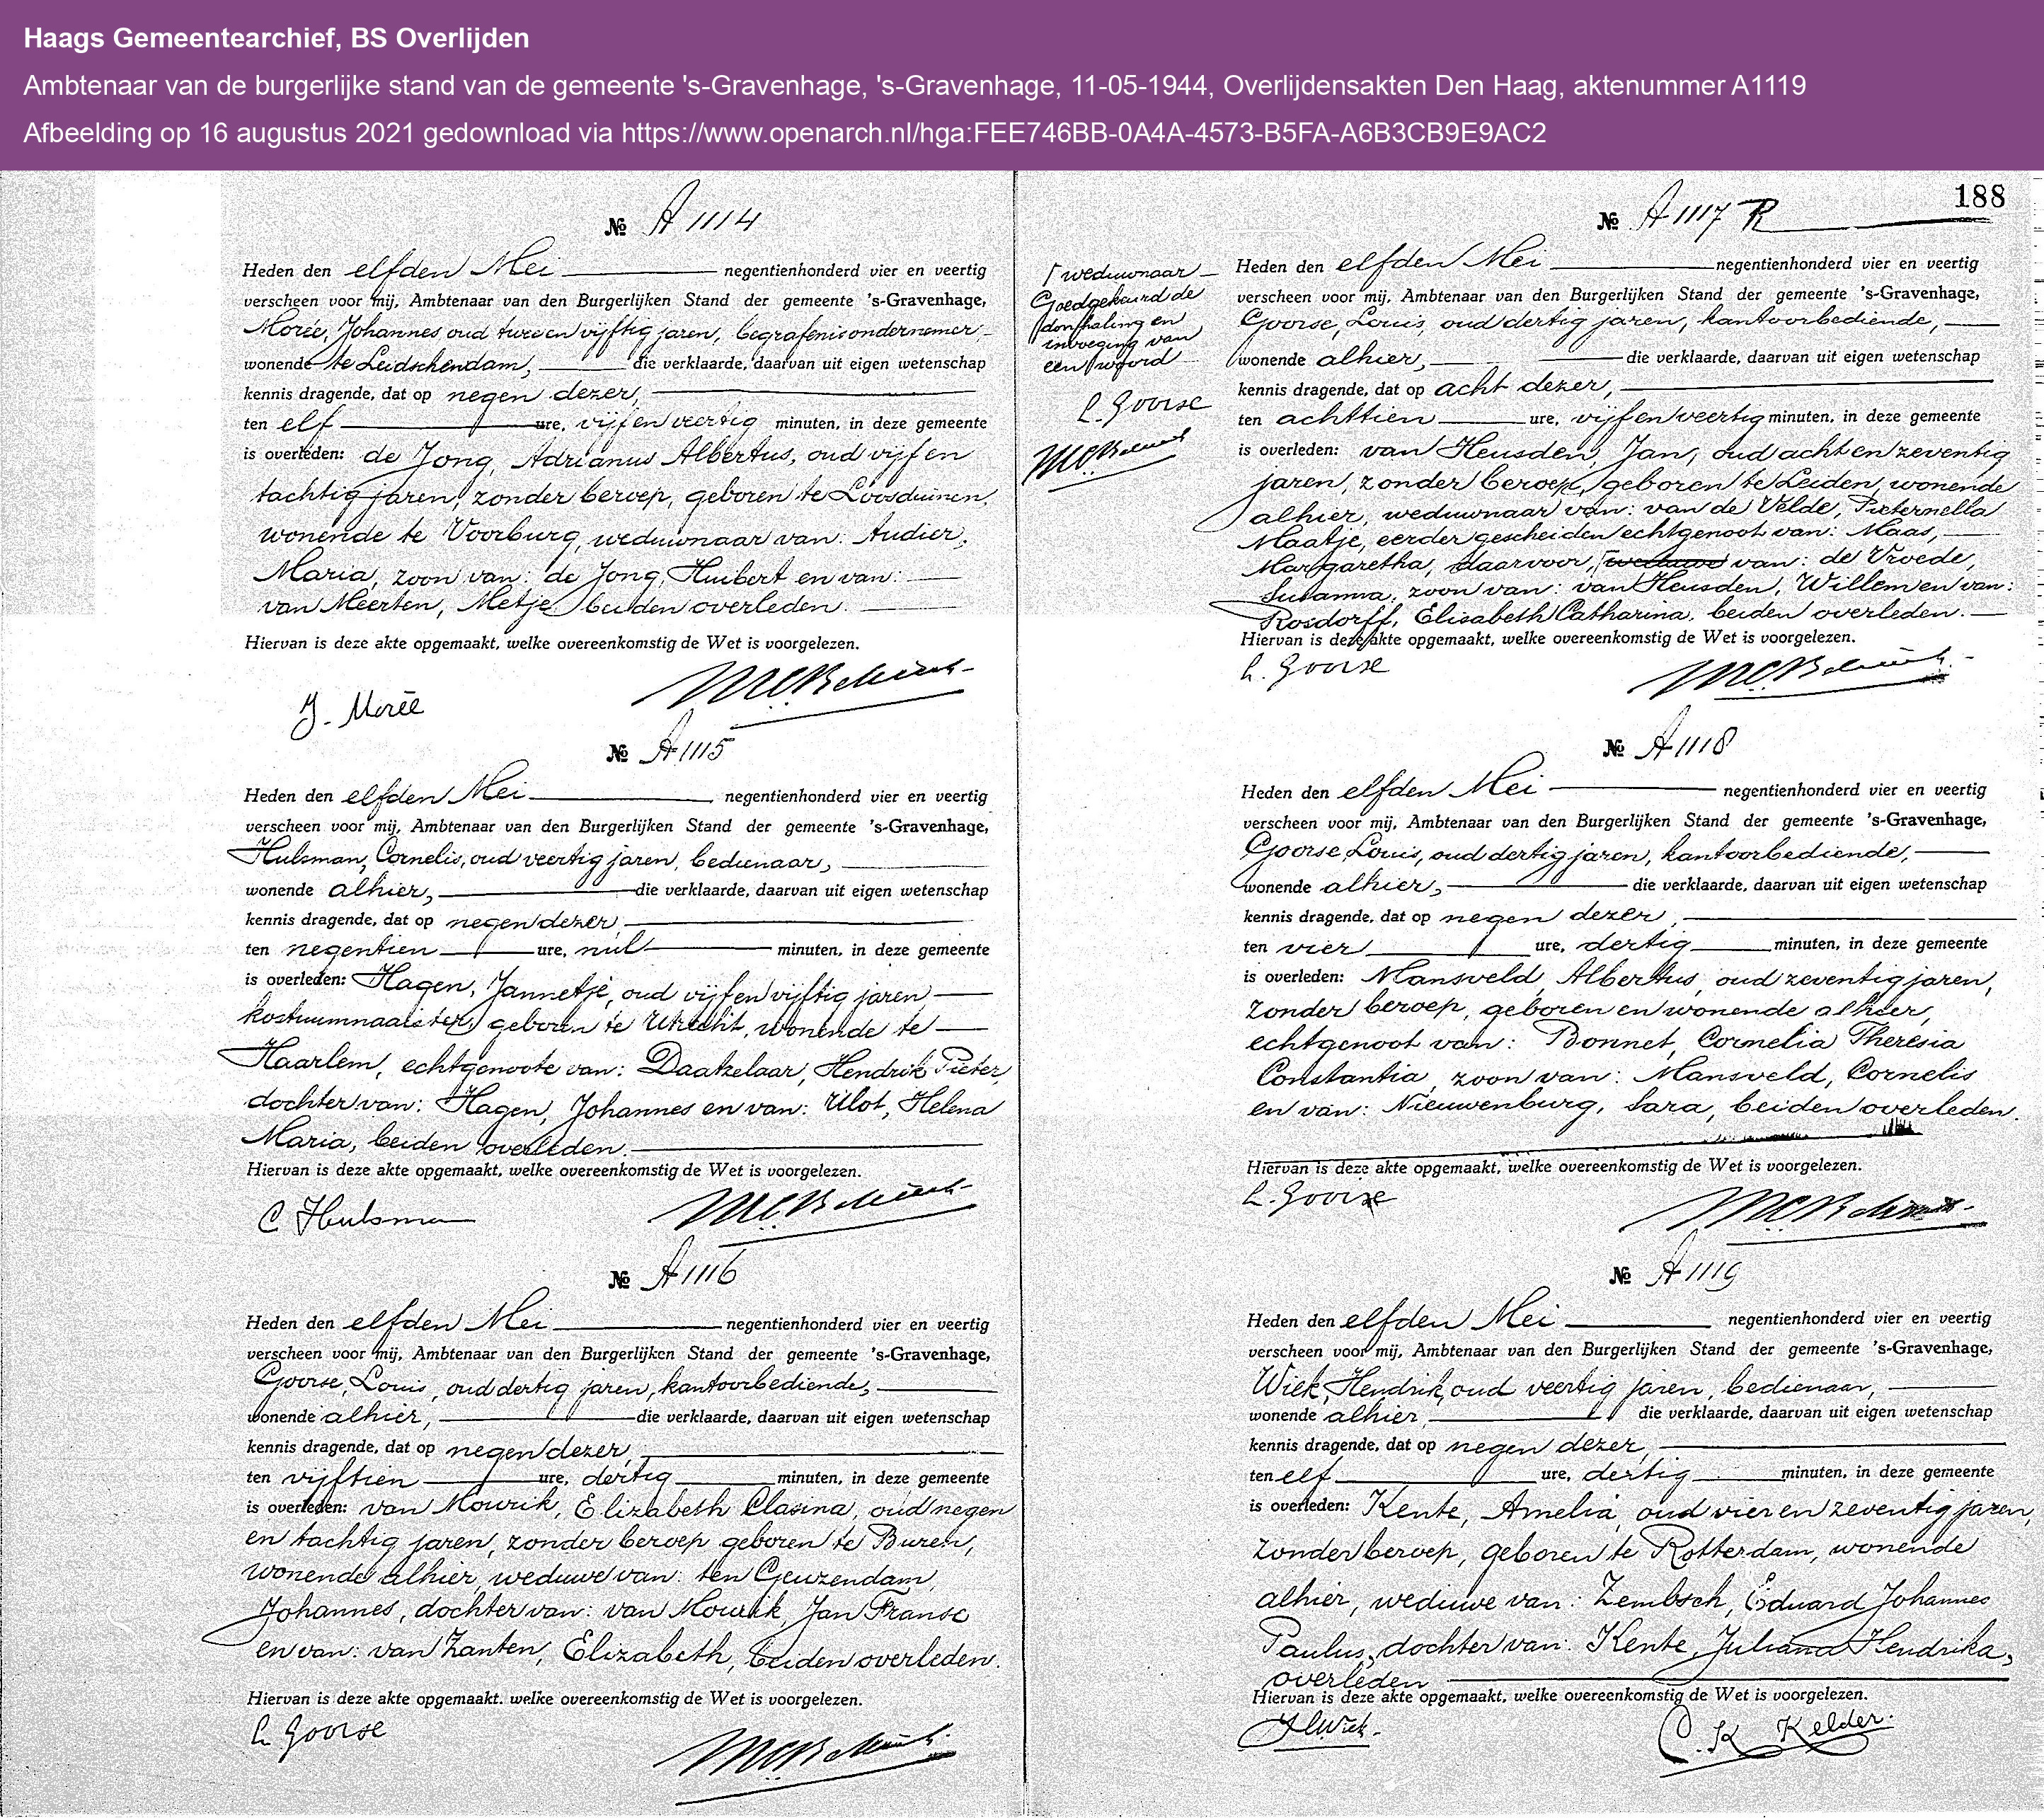 Haags Gemeentearchief, BS Overlijden
Ambtenaar van de burgerlijke stand van de gemeente 's-Gravenhage, 's-Gravenhage, 11-05-1944, Overlijdensakten Den Haag, aktenummer A1119
Afbeelding op 16 augustus 2021 gedownload via https://www.openarch.nl/hga:FEE746BB-0A4A-4573-B5FA-A6B3CB9E9AC2
№ A 1114
Heden den elfden Mei negentienhonderd vier en veertig
verscheen voor mij, Ambtenaar van den Burgerlijken Stand der gemeente 's-Gravenhage,
Morée, Johannes oud twee en vijftig jaren, begrafenisondernemer
wonende te Leidschendam, die verklaarde, daarvan uit eigen wetenschap
kennis dragende, dat op negen dezer,
ten elf ure, vijf en veertig minuten, in deze gemeente
is overleden: de Jong, Adrianus Albertus, oud vijf en
tachtig jaren, zonder beroep, geboren te Loosduinen,
wonende te Voorburg, weduwnaar van: Audier,
Maria, zoon van: de Jong, Huibert en van:
van Meerten, Metje, beiden overleden.
Hiervan is deze akte opgemaakt, welke overeenkomstig de Wet is voorgelezen.
J. Morée
№ A 1115
Heden den elfden Mei negentienhonderd vier en veertig
verscheen voor mij, Ambtenaar van den Burgerlijken Stand der gemeente 's-Gravenhage,
Hulsman, Cornelis, oud veertig jaren, bedienaar,
wonende alhier, die verklaarde, daarvan uit eigen wetenschap
kennis dragende, dat op negen dezer,
ten negentien ure, nul minuten, in deze gemeente
is overleden: Hagen, Jannetje, oud vijf en vijftig jaren
kostuumnaaister, geboren te Utrecht, wonende te
Haarlem, echtgenoote van: Daatzelaar, Hendrik Pieter,
dochter van: Hagen, Johannes en van: Ulot, Helena
Maria, beiden overleden.
Hiervan is deze akte opgemaakt, welke overeenkomstig de Wet is voorgelezen.
C Hulsman
№ A 1116
Heden den elfden Mei negentienhonderd vier en veertig
verscheen voor mij, Ambtenaar van den Burgerlijken Stand der gemeente 's-Gravenhage,
Goorse, Louis, oud dertig jaren, kantoorbediende,
wonende alhier, die verklaarde, daarvan uit eigen wetenschap
kennis dragende, dat op negen dezer,
ten vijftien ure, dertig minuten, in deze gemeente
is overleden: van Mourik, Elizabeth Clasina, oud negen
en tachtig jaren, zonder beroep geboren te Buren,
wonende alhier, weduwe van: ten Geuzendam,
Johannes, dochter van: van Mourik, Jan Franse
en van: van Zanten, Elizabeth, beiden overleden.
Hiervan is deze akte opgemaakt, welke overeenkomstig de Wet is voorgelezen.
L Goorse
188
№ A 1117 R
weduwnaar
Goedgekeurd de
doorhaling en
invoeging van
een woord
L. Goorse
Heden den elfden Mei negentienhonderd vier en veertig
verscheen voor mij, Ambtenaar van den Burgerlijken Stand der gemeente 's-Gravenhage,
Goorse, Louis, oud dertig jaren, kantoorbediende,
wonende alhier, die verklaarde, daarvan uit eigen wetenschap
kennis dragende, dat op acht dezer,
ten achttien ure, vijf en veertig minuten, in deze gemeente
is overleden: van Heusden, Jan, oud acht en zeventig
jaren, zonder beroep, geboren te Leiden, wonende
alhier, weduwnaar van: van de Velde, Pieternella
Maatje, eerder gescheiden echtgenoot van: Maas,
Margaretha, daarvoor, weduwe van: de Vroede,
Susanna, zoon van: van Heusden, Willem en van:
Rosdorff, Elisabeth Catharina, beiden overleden.
Hiervan is deze akte opgemaakt, welke overeenkomstig de Wet is voorgelezen.
L. Goorse
№ A 1118
Heden den elfden Mei negentienhonderd vier en veertig
verscheen voor mij, Ambtenaar van den Burgerlijken Stand der gemeente 's-Gravenhage,
Goorse, Louis, oud dertig jaren, kantoorbediende,
wonende alhier, die verklaarde, daarvan uit eigen wetenschap
kennis dragende, dat op negen dezer,
ten vier ure, dertig minuten, in deze gemeente
is overleden: Mansveld, Albertus, oud zeventig jaren,
zonder beroep, geboren en wonende alhier,
echtgenoot van: Bonnet, Cornelia Theresia
Constantia, zoon van: Mansveld, Cornelis
en van: Nieuwenburg, Sara, beiden overleden.
Hiervan is deze akte opgemaakt, welke overeenkomstig de Wet is voorgelezen.
L. Goorse
№ A 1119
Heden den elfden Mei negentienhonderd vier en veertig
verscheen voor mij, Ambtenaar van den Burgerlijken Stand der gemeente 's-Gravenhage,
Wiek, Hendrik, oud veertig jaren, bedienaar,
wonende alhier, die verklaarde, daarvan uit eigen wetenschap
kennis dragende, dat op negen dezer,
ten elf ure, dertig minuten, in deze gemeente
is overleden: Kente, Amelia, oud vier en zeventig jaren,
zonder beroep, geboren te Rotterdam, wonende
alhier, weduwe van: Zembsch, Eduard Johannes
Paulus, dochter van: Kente, Juliana Hendrika,
overleden
Hiervan is deze akte opgemaakt, welke overeenkomstig de Wet is voorgelezen.
H Wiek.
C. K Kelder.